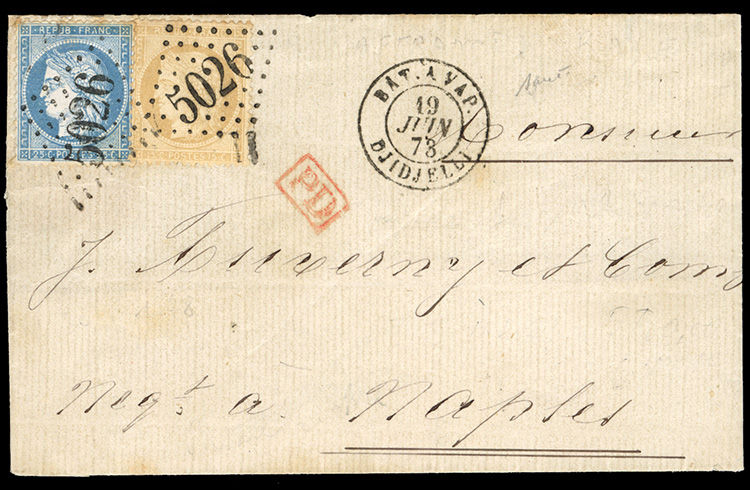 REPUB·FRANC·
25 C POSTES 25 C
5026
15 C POSTES 15 C
5026
BAT. A VAP.
19
JUIN
73
DJIDJELLI
PD
Monsieur
J. Auverny et Comp
Negt à Naples